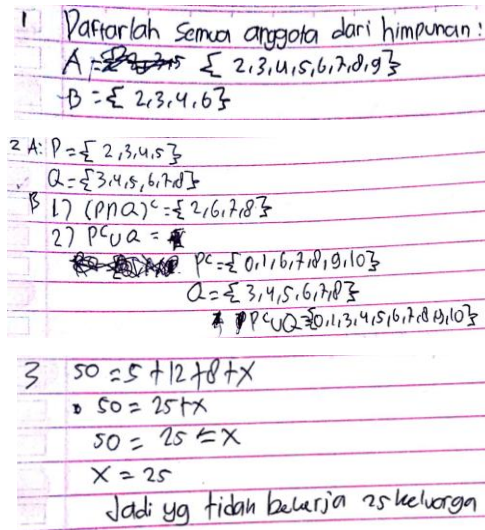 1 Daftarlah semua anggota dari himpunan :
A = { 2,3,4,5,6,7,8,9}
B = { 2,3,4,6}
2 A: P = { 2,3,4,5}
Q = {3,4,5,6,7,8}
B 1) (P∩Q)ᶜ = {2,6,7,8}
2) Pᶜ∪Q =
Pᶜ = {0,1,6,7,8,9,10}
Q = {3,4,5,6,7,8}
Pᶜ∪Q = {0,1,3,4,5,6,7,8,9,10}
3 50 = 5 + 12 + 8 + x
50 = 25 + x
50 = 25 = x
x = 25
Jadi yg tidak bekerja 25 keluarga